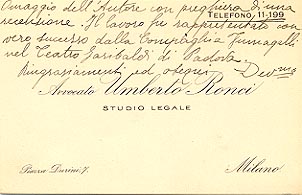 Omaggio dell'Autore con preghiera di una
recensione. Il lavoro fu rappresentato con
TELEFONO, 11-199
vero successo dalla Compagnia Fumagalli
nel Teatro Garibaldi di Padova.
Ringraziamenti ed ossequi Dev.mo
Avvocato Umberto Ronci
STUDIO LEGALE
Piazza Durini 7.
Milano